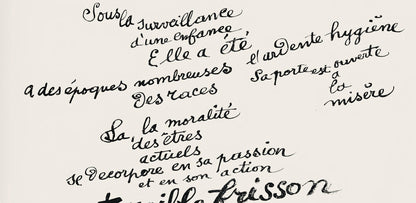 Sous la surveillance
d'une enfance
Elle a été
l'ardente hygiène
a des époques nombreuses
Des races
La porte est ouverte
à
la
misère
La, la moralité
des êtres
actuels
se decorpore en sa passion
et en son action
frisson